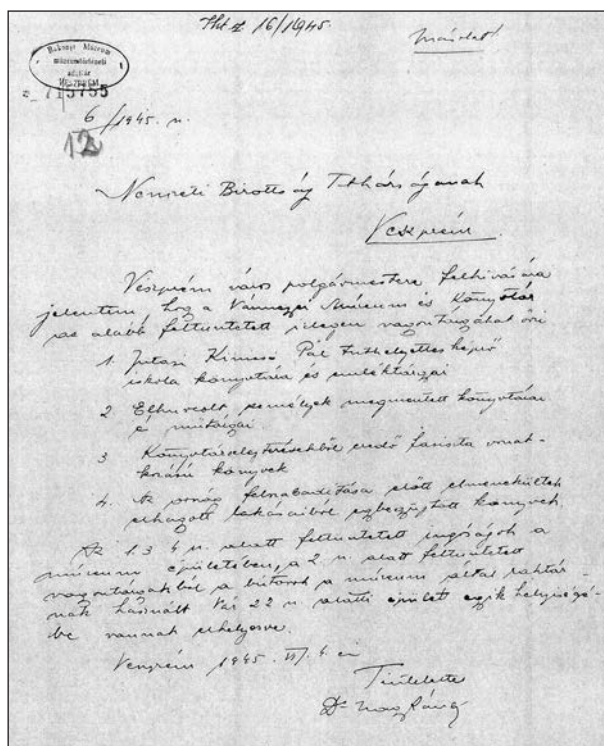 16/1945.
Másolat!
Bakonyi Múzeum
múzeumtörténeti
adattár
VESZPRÉM
713755
6/1945. n.
12
Nemzeti Bizottság Titkárságának
Veszprém
Veszprém város polgármestere felhívására
jelentem, hogy a Vármegyei Múzeum és Könyvtár
az alább feltüntetett idegen vagyontárgyakat őrzi
1. Jutasi Kinizsi Pál képző
iskola könyvtára és emléktárgyai
2. Elhurcolt személyek megmentett könyvtárai
és műtárgyai.
3 Könyvtárselejtezésekből eredő fasiszta vonat-
kozású könyvek
4. Az ország felszabadítása előtt elmenekültek
elhagyott lakásaiból egybegyűjtött könyvek.
Az 1. 3 4 n. alatt feltüntetett ingóságok a
múzeum épületében, a 2 n. alatt feltüntetett
vagyontárgyakból a bútorok a múzeum által raktár
nak használt Vár 22 n alatti épület egyik helyiségé-
be vannak elhelyezve.
Veszprém 1945.
Tisztelettel
Dr Nagy